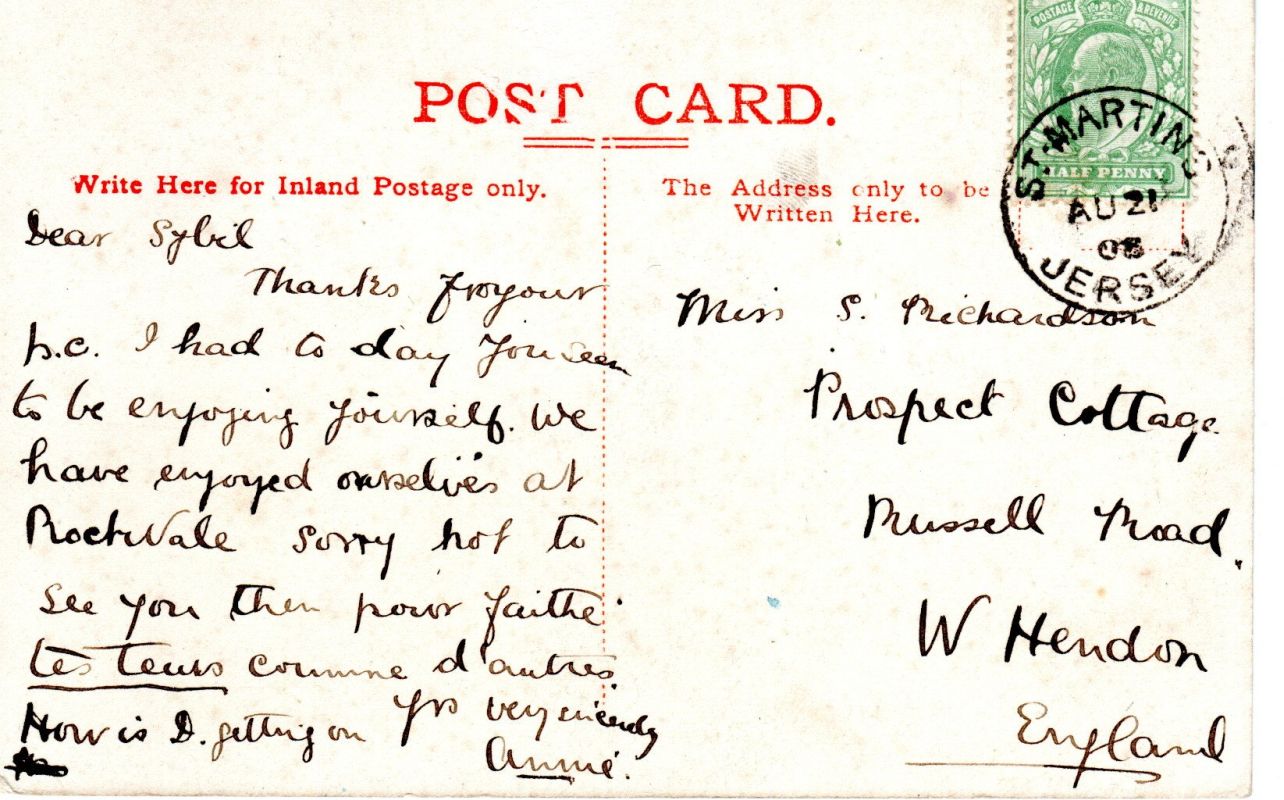 POSTAGE & REVENUE
HALF PENNY
ST. MARTINS
AU 21
JERSEY
POST CARD.
Write Here for Inland Postage only.
The Address only to be
Written Here.
Dear Sybil
Thanks for your
p.c. I had to day You seem
to be enjoying yourself. We
have enjoyed ourselves at
RockVale sorry not to
see you then pour
comme d'autres.
How is D. getting on
Yrs very sincerely
Annie.
Miss S. Richardson
Prospect Cottage
Russell Road.
W Hendon
England